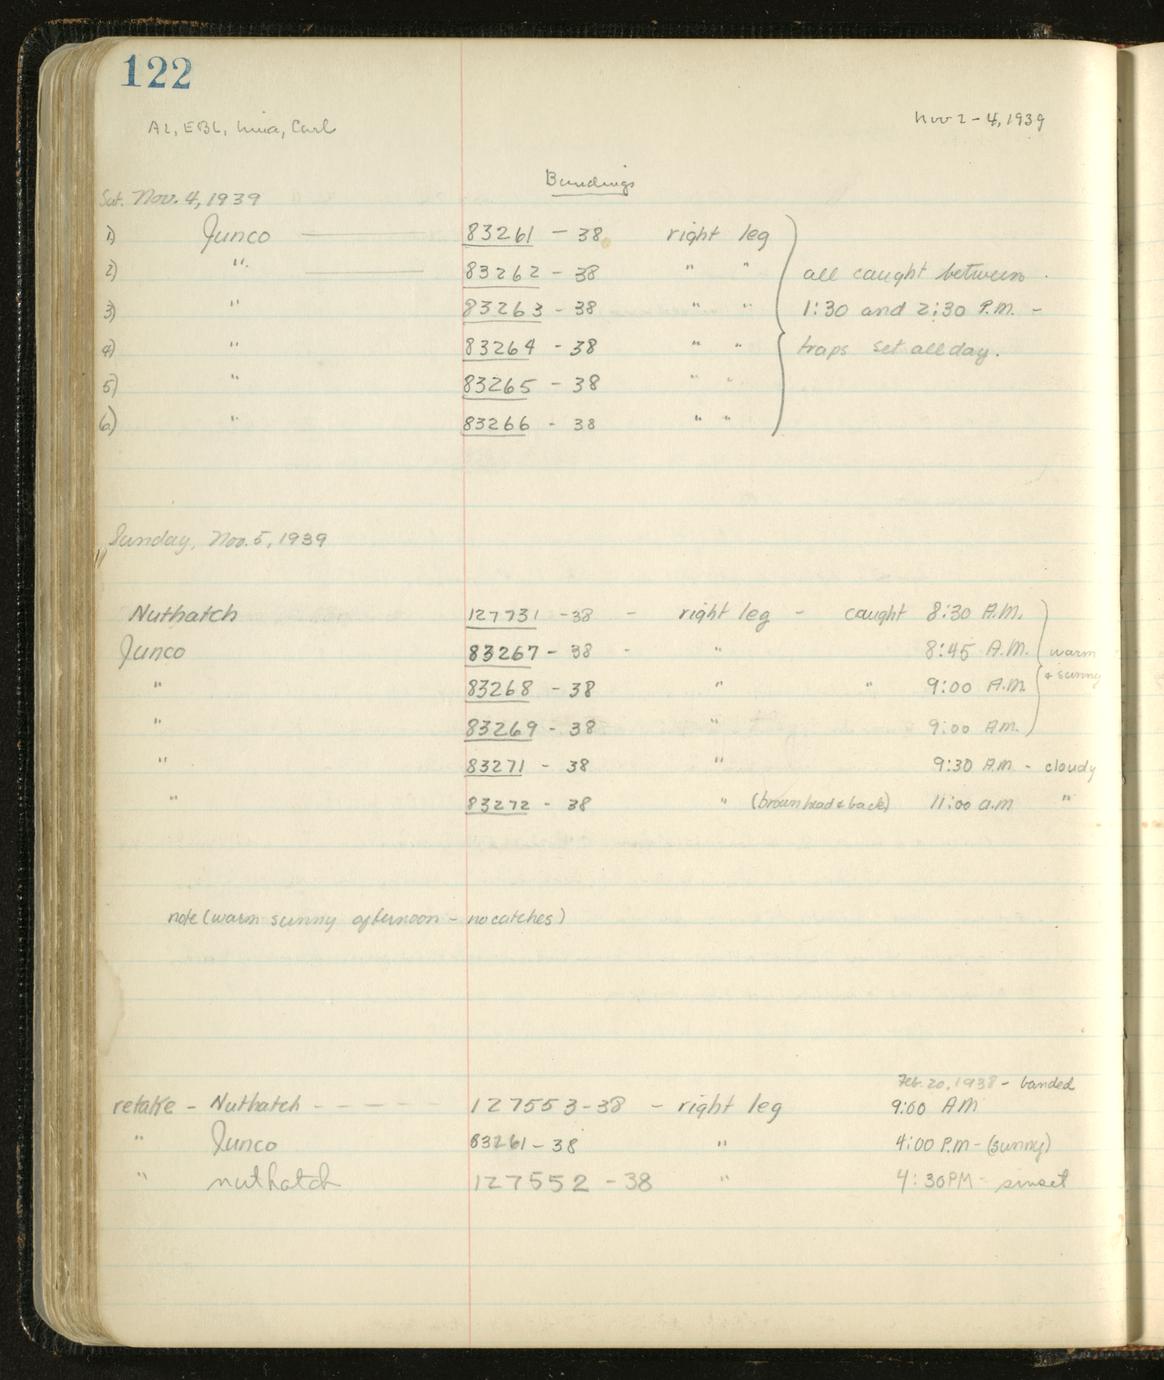 122
AL, EBL, Carl
Nov 2-4, 1939
Bandings
Sat. Nov. 4, 1939
1) Junco 83261 - 38 right leg
2) " 83262 - 38 " " all caught between
3) " 83263 - 38 " " 1:30 and 2:30 P.M. -
4) " 83264 - 38 " " traps set all day.
5) " 83265 - 38 " "
6) " 83266 - 38 " "
Sunday, Nov. 5, 1939
Nuthatch 127731 - 38 - right leg - caught 8:30 A.M.
Junco 83267 - 38 - " 8:45 A.M. warm
" 83268 - 38 " " 9:00 A.M. & sunny
" 83269 - 38 " 9:00 A.M.
" 83271 - 38 " 9:30 A.M - cloudy
" 83272 - 38 " (brown head & back) 11:00 a.m "
note (warm sunny afternoon - no catches)
Feb. 20, 1938 - banded
retake - Nuthatch - - - - 127553-38 - right leg 9:00 AM
" Junco 83261-38 " 4:00 P.M - (sunny)
" nuthatch 127552 - 38 " 4:30PM - sunset